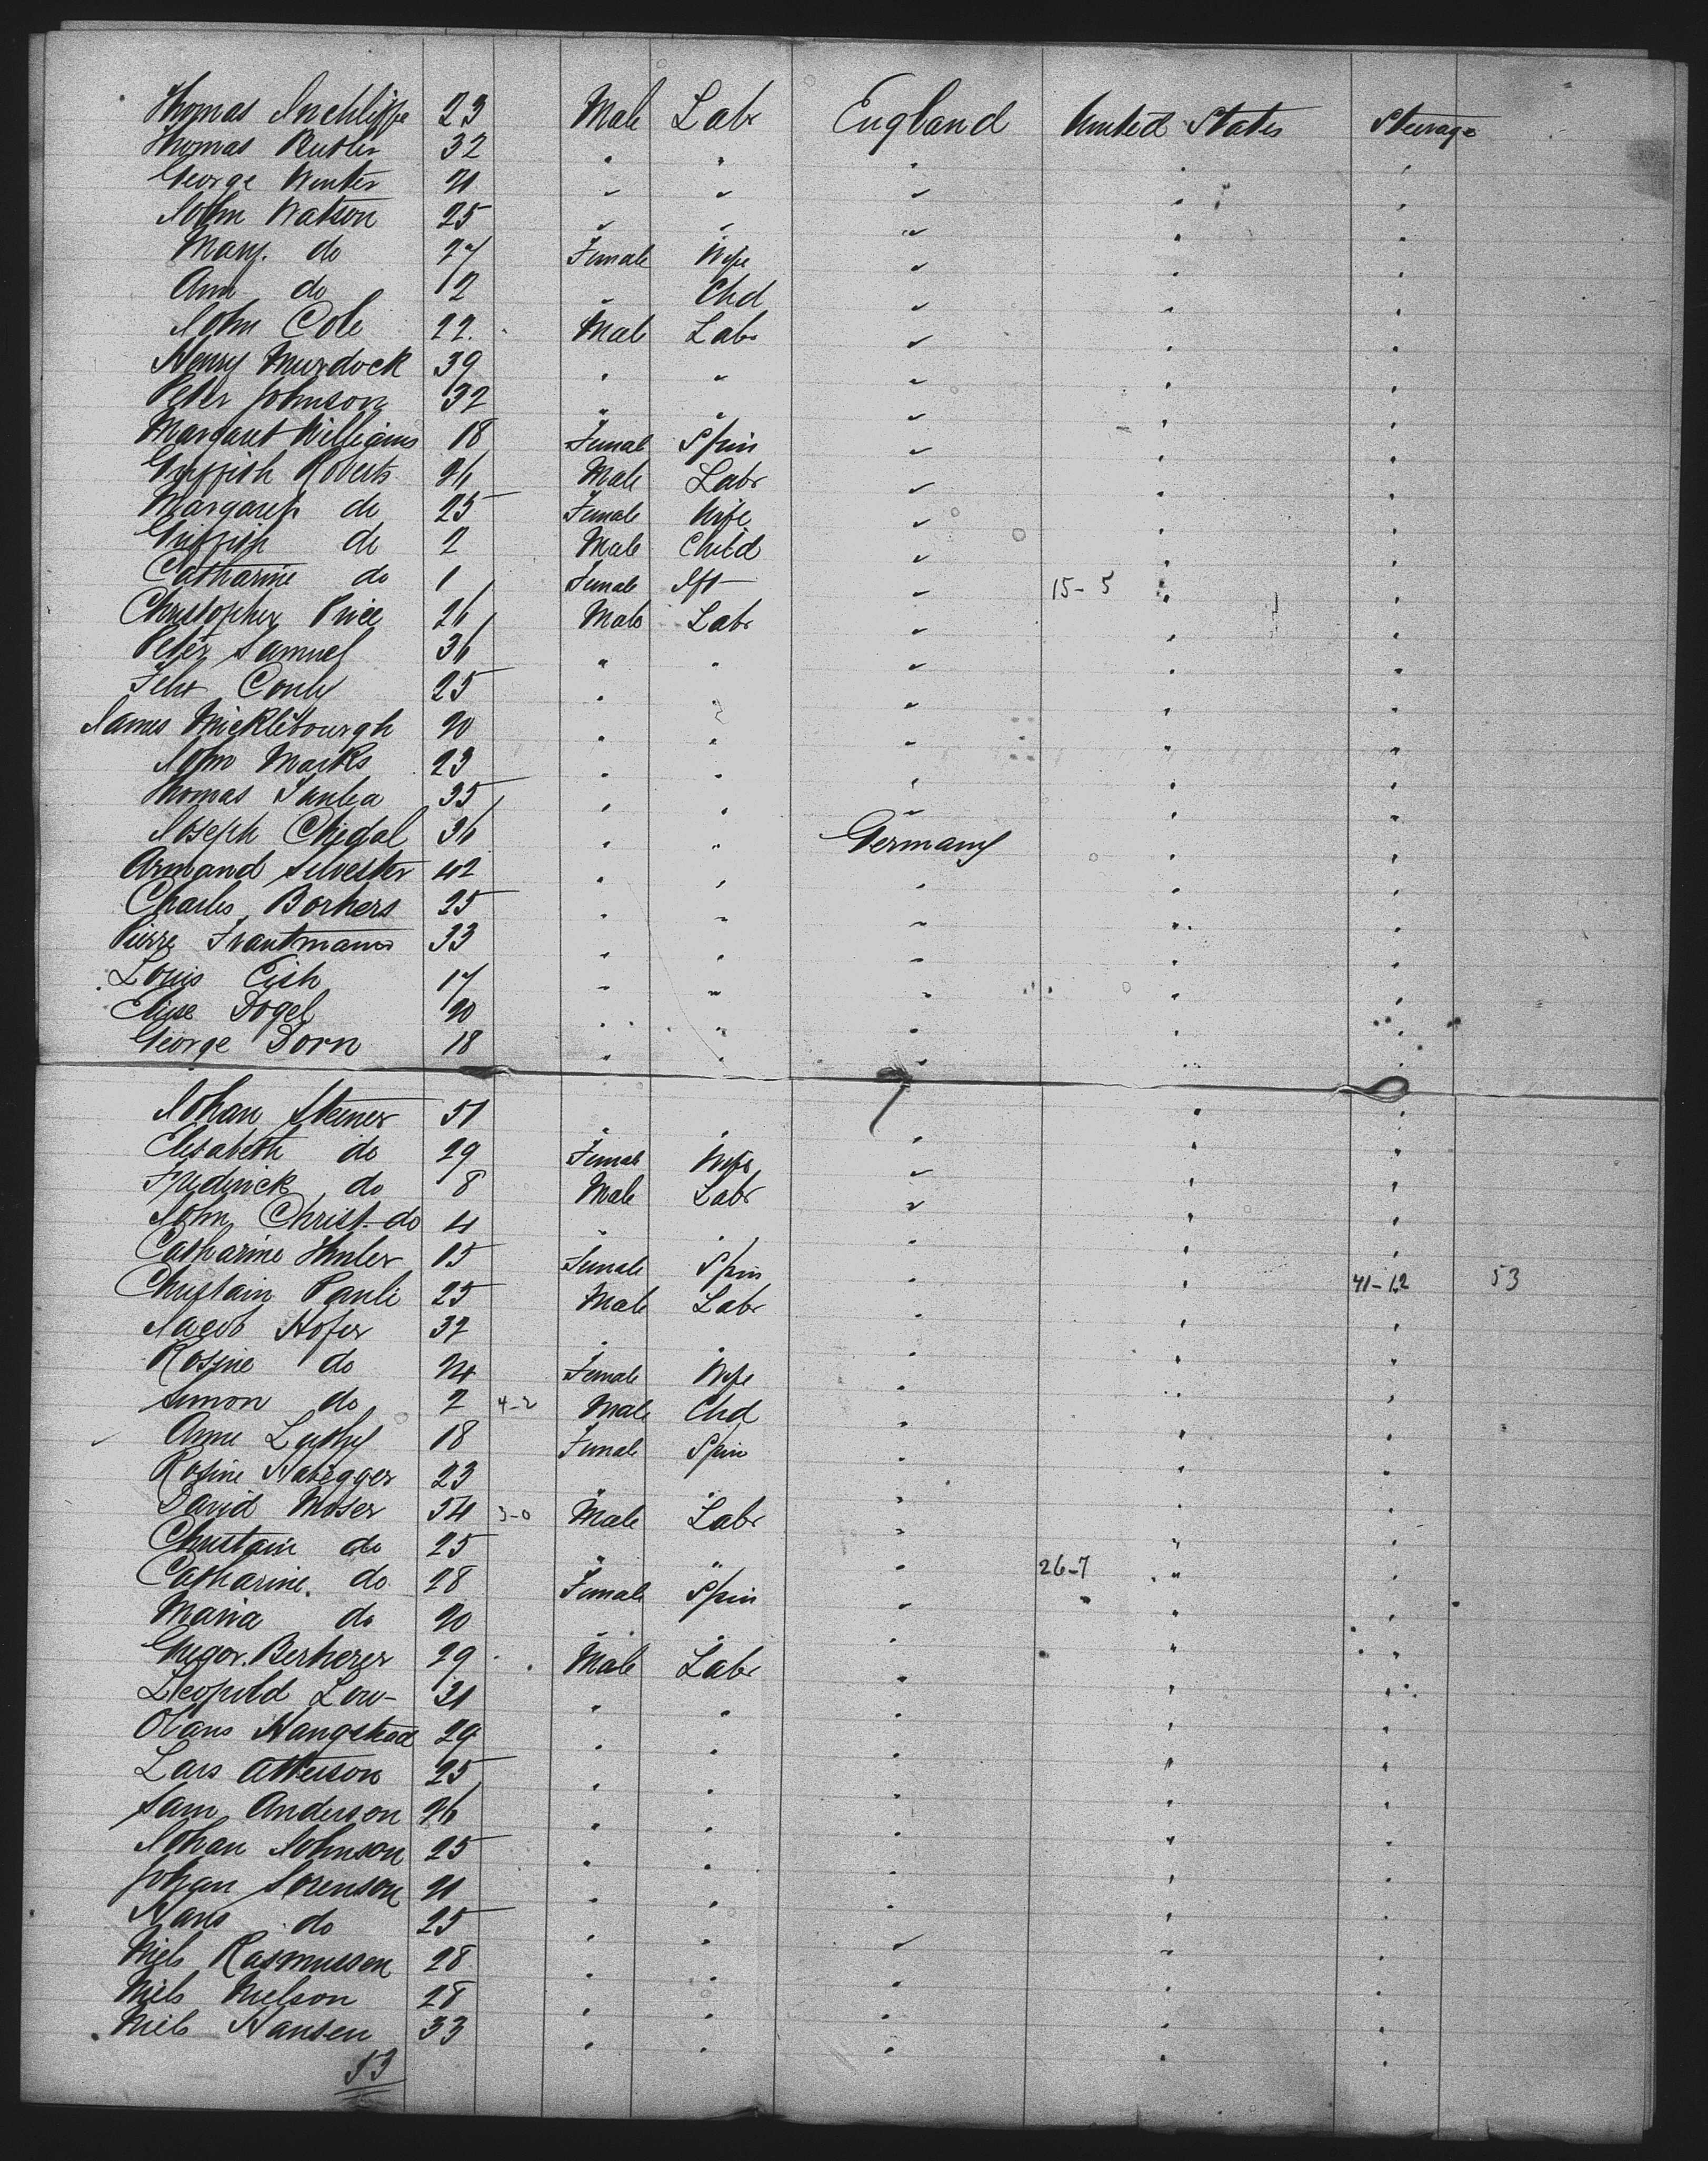 Thomas Inchliffe 23 Male Labr England United States Steerage
Thomas Butler 32 " " " " "
George Winter 21 " " " " "
John Watson 25 " " " " "
Mary do 27 Female Wife " " "
Ann do 2 " Chd " " "
John Cole 22 Male Labr " " "
Henry Murdock 39 " " " " "
Peter Johnson 32 " " " " "
Margaret Williams 18 Female Spin " " "
Griffith Roberts 26 Male Labr " " "
Margaret do 25 Female Wife " " "
Griffith do 2 Male Child " " "
Catharine do 1 Female Ift " 15-5 " "
Christopher Price 26 Male Labr " " "
Peter Samuel 36 " " " " "
Felix Conly 25 " " " " "
James Micklebourgh 20 " " " " "
John Marks 23 " " " " "
Thomas 35 " " " " "
Joseph Chedal 36 " " Germany " "
Armand Silvester 42 " " " " "
Charles Borhers 25 " " " " "
Pierre Trautmann 33 " " " " "
Louis 17 " " " " "
Elise Vogel 20 " " " " "
George Dorn 18 " " " " "
Johan Steiner 51 " " " " "
Elisabeth do 29 Female Wife " " "
Fredrick do 8 Male Labr " " "
John Christ. do 4 " " " " "
Catharine 15 Female Spin " " 41-12 53
Christain Pauli 25 Male Labr " " "
Jacob Hofer 32 " " " " "
Rosine do 24 Female Wife " " "
Simon do 2 4-2 Male Chd " " "
Anne Luthy 18 Female Spin " " "
Rosine Habegger 23 " " " " "
David Moser 54 3-0 Male Labr " " "
Christain do 25 " " " 26-7 " "
Catharine do 28 Female Spin " " "
Maria do 20 " " " " "
Gregor Berherer 29 Male Labr " " "
Leopold Low 31 " " " " "
Olans Hangstead 29 " " " " "
Lars Atterson 25 " " " " "
Sam Anderson 26 " " " " "
Johan Johnson 25 " " " " "
Johan Sorenson 21 " " " " "
Hans do 25 " " " " "
Niels Rasmussen 28 " " " " "
Niels Nielson 28 " " " " "
Niels Hansen 33 " " " " "
53